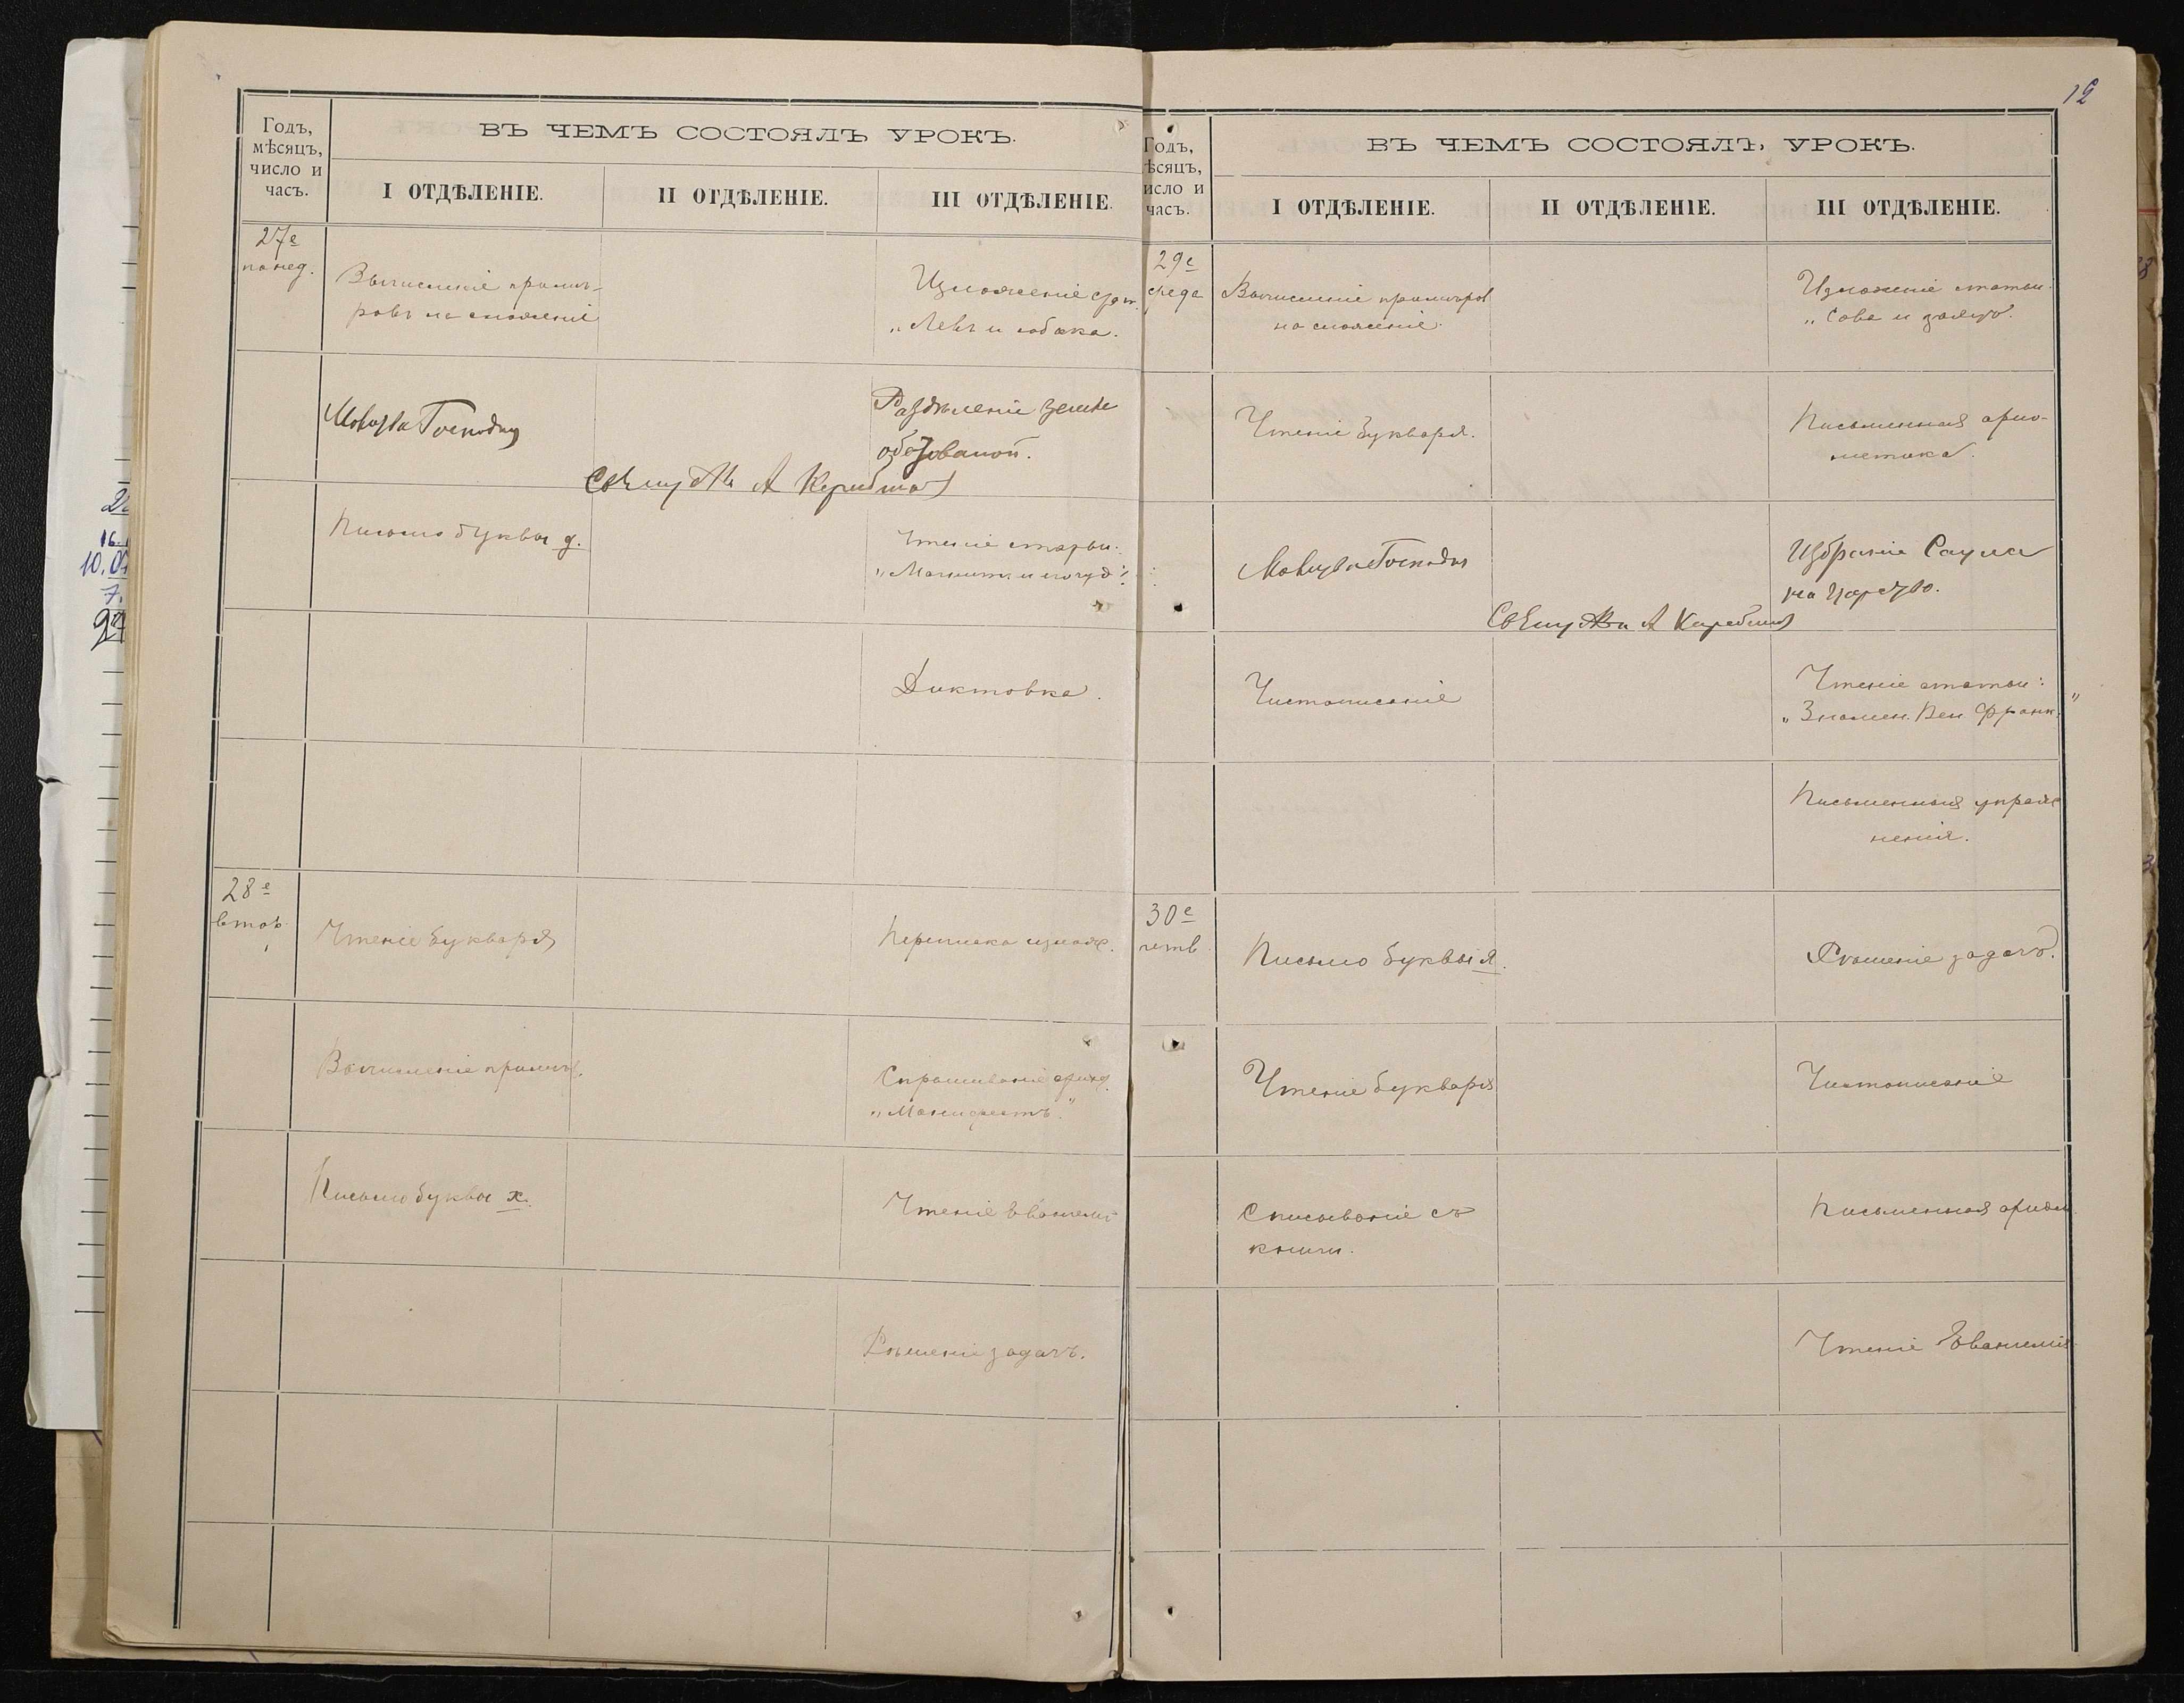 12
Годъ,
мѣсяцъ,
число и
часъ.
ВЪ ЧЕМЪ СОСТОЯЛЪ УРОКЪ.
I ОТДѢЛЕНІЕ.
II ОТДѢЛЕНІЕ.
III ОТДѢЛЕНІЕ.
27е
понед.
Вычисленіе примѣ-
ровъ на сложеніе
Изложеніе стат.
„Левъ и собака.
Молитва Господня
Раздѣленіе земли
обѣтованой.
Свящ
Письмо буквы д.
Чтеніе статьи:
„Магнитъ и
Диктовка.
28е
втор.
Чтеніе букваря
Переписка излож.
Вычисленіе примѣр.
Спрашиваніе
„Манифестъ."
Письмо буквы х.
Чтеніе Евангелі
Рѣшеніе задачъ.
Годъ,
ѣсяцъ,
исло и
часъ.
ВЪ ЧЕМЪ СОСТОЯЛЪ УРОКЪ.
I ОТДѢЛЕНІЕ.
II ОТДѢЛЕНІЕ.
III ОТДѢЛЕНІЕ.
29е
среда
Вычисленіе примѣровъ
на сложеніе.
Изложеніе статьи
„Сова и заяцъ.
Чтеніе букваря.
Письменная ариѳ-
метика.
Молитва Господня
Избраніе Саула
на царство.
Свящ
Чистописаніе
Чтеніе статьи:
„Знамен. Вен Франк."
Письменныя упраж
ненія.
30е
четв
Письмо буквы я.
Рѣшеніе задачъ.
Чтеніе букваря
Чистописаніе
Списываніе съ
книги.
Письменная ариѳм
Чтеніе Евангелія